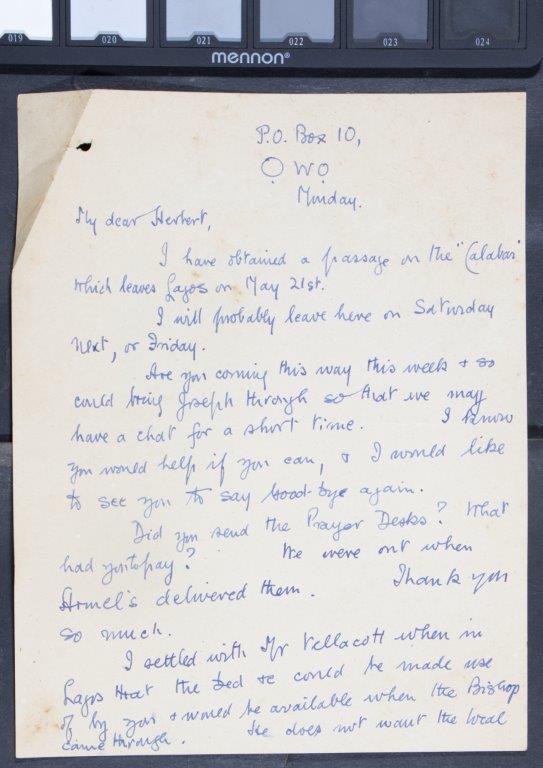 019 020 021 022 023 024
mennon®
P.O. Box 10,
Ọ WỌ
Monday.
My dear Herbert,
I have obtained a passage on the "Calabar"
which leaves Lagos on May 21st.
I will probably leave here on Saturday
next, or Friday.
Are you coming this way this week & so
could bring Joseph through so that we may
have a chat for a short time. I know
you would help if you can, & I would like
to see you to say Good-bye again.
Did you send the Prayer Desks? What
had you to pay? We were out when
Armel's delivered them. Thank you
so much.
I settled with Mr Vellacott when in
Lagos that the bed &c could be made use
of by you & would be available when the Bishop
came through. He does not want the local